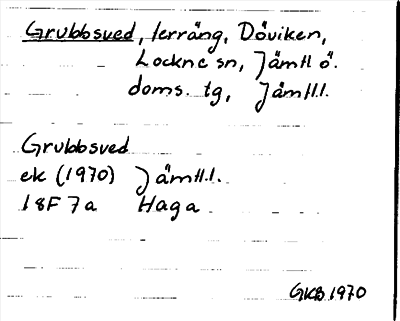 Grubbsved, terräng, Döviken,
Lockne sn, Jämtl ö.
doms. tg, Jämtl.l.
Grubbsved
ek (1970) Jämtl.l.
18F 7a Haga
GKB 1970